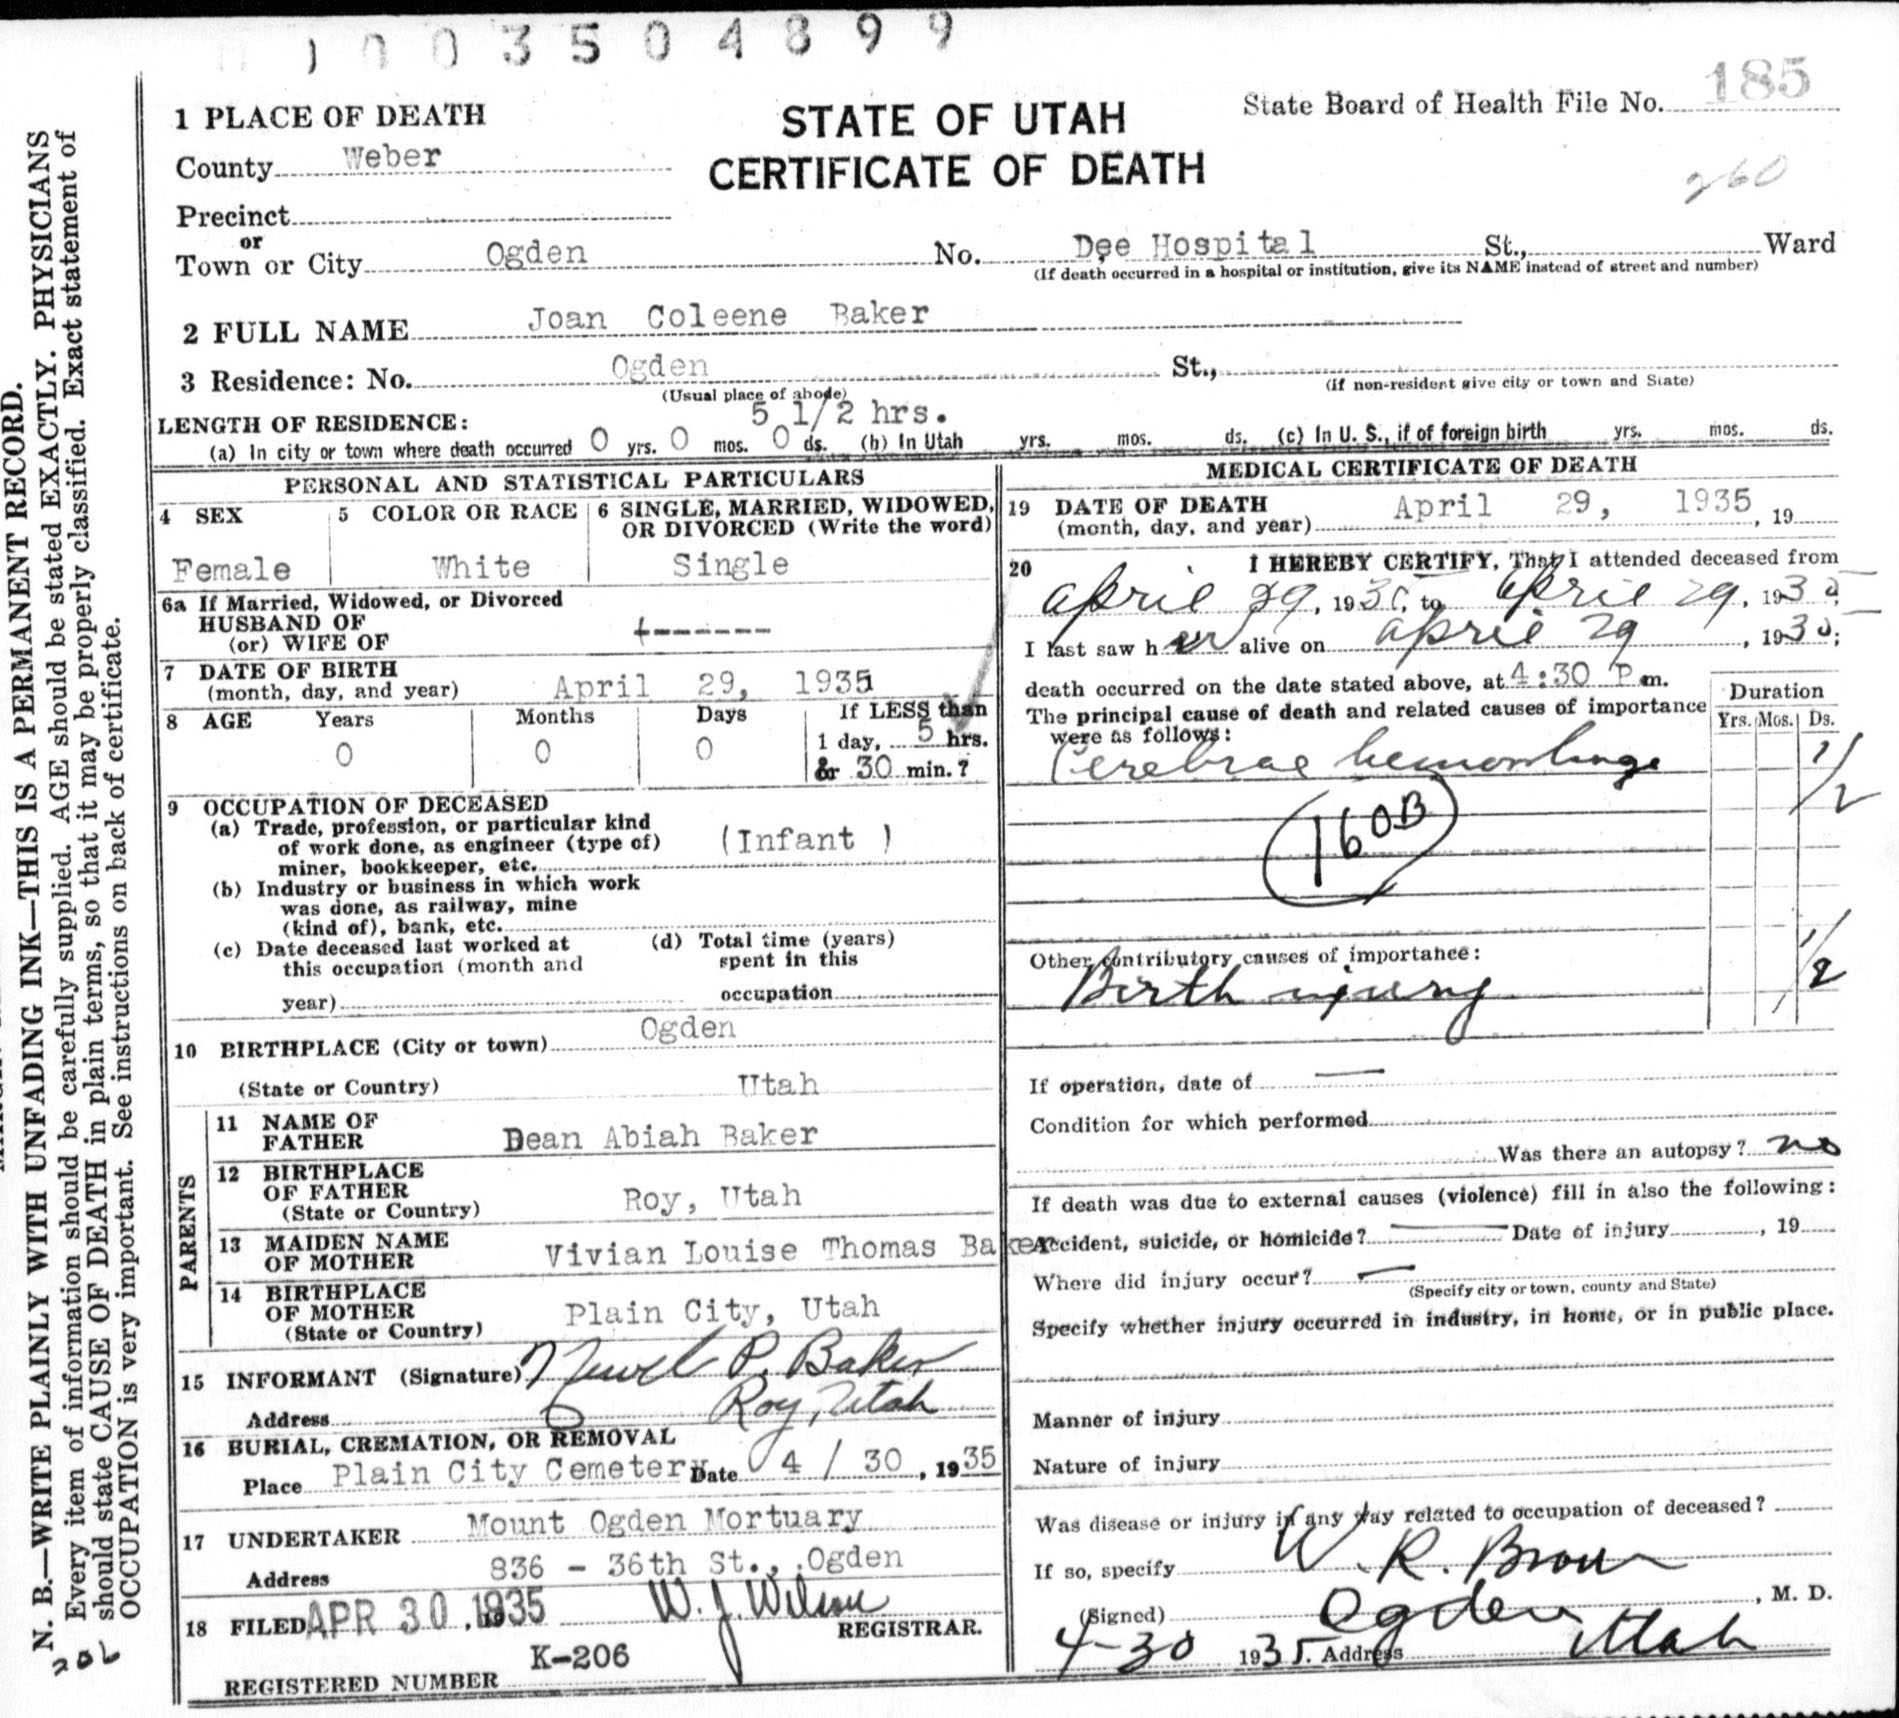 0 1 0 0 3 5 0 4 8 9 9
State Board of Health File No. 185
260
STATE OF UTAH
CERTIFICATE OF DEATH
1 PLACE OF DEATH
County Weber
Precinct
or
Town or City Ogden No. Dee Hospital St., Ward
(If death occurred in a hospital or institution, give its NAME instead of street and number)
2 FULL NAME Joan Coleene Baker
3 Residence: No. Ogden St.,
(Usual place of abode) (If non-resident give city or town and State)
5 1/2 hrs.
LENGTH OF RESIDENCE:
(a) In city or town where death occurred 0 yrs. 0 mos. 0 ds. (b) In Utah yrs. mos. ds. (c) In U. S., if of foreign birth yrs. mos. ds.
PERSONAL AND STATISTICAL PARTICULARS
4 SEX
Female
5 COLOR OR RACE
White
6 SINGLE, MARRIED, WIDOWED,
OR DIVORCED (Write the word)
Single
6a If Married, Widowed, or Divorced
HUSBAND OF
(or) WIFE OF
7 DATE OF BIRTH
(month, day, and year) April 29, 1935
8 AGE Years Months Days If LESS than
0 0 0 1 day, 5 hrs.
& or 30 min.?
9 OCCUPATION OF DECEASED
(a) Trade, profession, or particular kind
of work done, as engineer (type of)
miner, bookkeeper, etc.
(Infant )
(b) Industry or business in which work
was done, as railway, mine
(kind of), bank, etc.
(c) Date deceased last worked at
this occupation (month and
year)
(d) Total time (years)
spent in this
occupation
10 BIRTHPLACE (City or town) Ogden
(State or Country) Utah
PARENTS
11 NAME OF
FATHER Dean Abiah Baker
12 BIRTHPLACE
OF FATHER
(State or Country) Roy, Utah
13 MAIDEN NAME
OF MOTHER Vivian Louise Thomas Baker
14 BIRTHPLACE
OF MOTHER
(State or Country) Plain City, Utah
15 INFORMANT (Signature) P. Baker
Address Roy, Utah
16 BURIAL, CREMATION, OR REMOVAL
Place Plain City Cemetery Date 4 / 30, 1935
17 UNDERTAKER Mount Ogden Mortuary
Address 836 - 36th St., Ogden
18 FILED APR 30, 1935 W. J. Wilson
REGISTRAR.
K-206
REGISTERED NUMBER
MEDICAL CERTIFICATE OF DEATH
19 DATE OF DEATH
(month, day, and year) April 29, 1935, 19
20 I HEREBY CERTIFY, That I attended deceased from
April 29, 1935, to April 29, 1935
I last saw h er alive on April 29, 1935;
death occurred on the date stated above, at 4:30 P m.
The principal cause of death and related causes of importance
were as follows:
Duration
Yrs. Mos. Ds.
Cerebral hemorrhage 1/2
160B
Other contributory causes of importance:
Birth injury 1/2
If operation, date of —
Condition for which performed
Was there an autopsy? no
If death was due to external causes (violence) fill in also the following:
Accident, suicide, or homicide? — Date of injury, 19
Where did injury occur? —
(Specify city or town, county and State)
Specify whether injury occurred in industry, in home, or in public place.
Manner of injury
Nature of injury
Was disease or injury in any way related to occupation of deceased?
If so, specify
(Signed) W. R. Brown, M. D.
4-30 1935. Address Ogden Utah
N. B.—WRITE PLAINLY WITH UNFADING INK—THIS IS A PERMANENT RECORD.
Every item of information should be carefully supplied. AGE should be stated EXACTLY. PHYSICIANS
should state CAUSE OF DEATH in plain terms, so that it may be properly classified. Exact statement of
OCCUPATION is very important. See instructions on back of certificate.
206